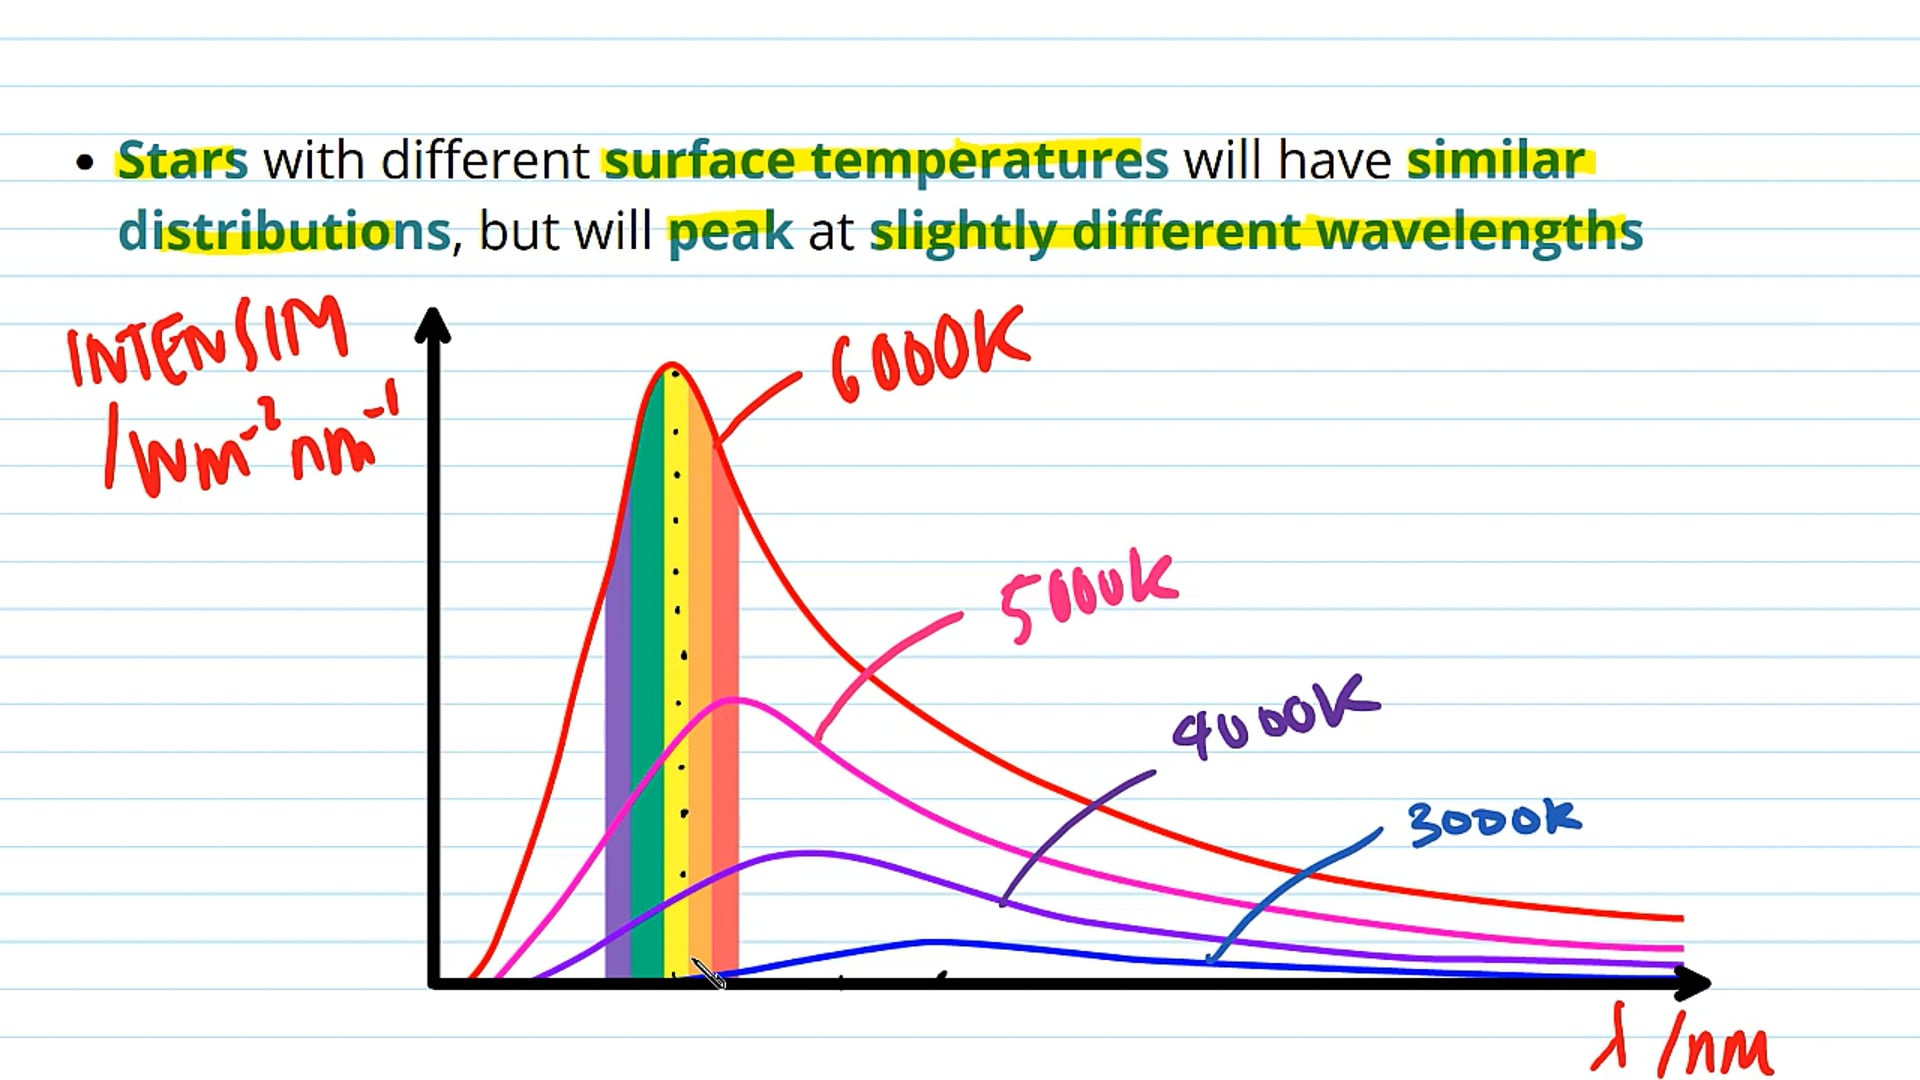 • Stars with different surface temperatures will have similar
distributions, but will peak at slightly different wavelengths
INTENSITY
/Wm⁻²nm⁻¹
6000K
5000K
4000K
3000K
λ /nm